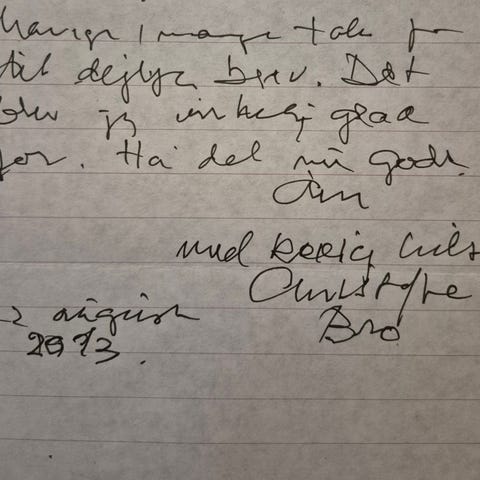 mange tak for
dejlige brev. Det
blev jeg virkelig glad
for. Ha' det nu godt
med kærlig hils
Christoffer
Bro
2 august
2013.